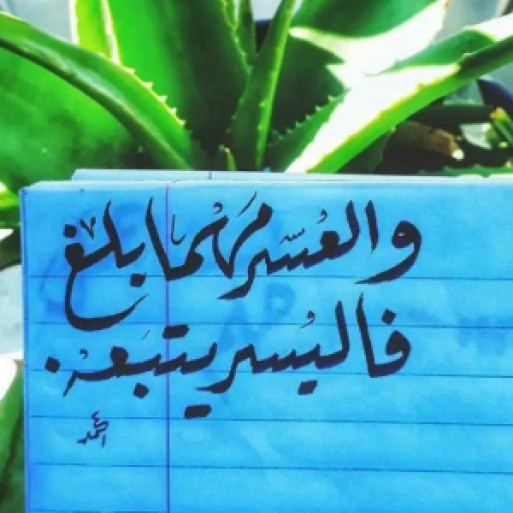 والعُسّر مَهْما بلغ
فاليُسر يتبَعهْ.
احمد